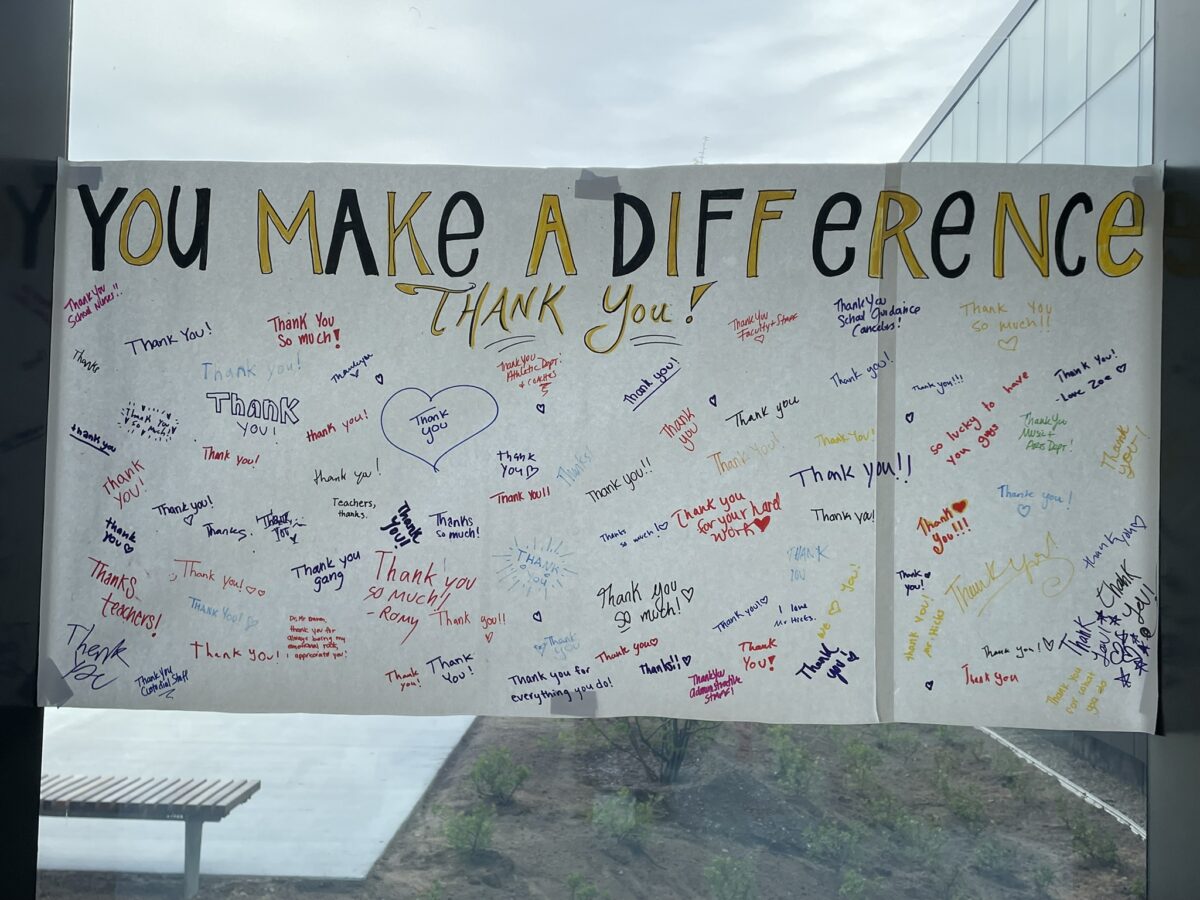 YOU MAKE A DIFFERENCE
THANK You!
Thank You
School Nurses!!
Thank You!
Thank You
So much!
Thank You
Faculty + Staff
Thank You
School Guidance
Thank You
so much!!
Thanks
Thank you!
Thankyou
Thank You
Athletic Dept!
+ coaches
Thank you!
Thank you!
Thank you!!!
Thank You!
-Love Zoe
Thank You
so much!
Thank
You!
thank you!
Thank
you
Thank
you
Thank you
so lucky to have
you guys
Thank You
Music +
Arts Dept!
Thank
you!
thank you
Thank you!
Thank you!
thank
you
Thanks!
Thank You!
Thank You!
Thank you!!
Thank
you!
thank you!
Thank you!!
Thank you!!
Teachers,
thanks.
Thank you!
Thanks.
Thank
You!
Thanks
so much!
Thank you
for your hard
work
Thank
you!!!
Thank you!
thank
you
Thanks
so much!
thank you
Thanks
teachers!
Thank you!
Thank you
gang
Thank you
so much!!
-Romy
THANK
YOU
Thank you
so much!
THANK
YOU
Thank
you!
Thank you!
Thank
you!
THANK YOU!
Thank you!!
Thank you!
I love
Mr. Hicks.
thank you!
Mr Hicks
thank you for
always being my
emotional rock,
I appreciate you!
Thank you!
Thank
you
Thank you
Thank
You!
Thank you!
Thank
you!
Thank You
Custodial Staff
Thank
you!
Thank
You!
Thank you for
everything you do!
Thanks!!
Thank You
administrative
staff!
Thank
you
Thank you
Thank you
for what
you do